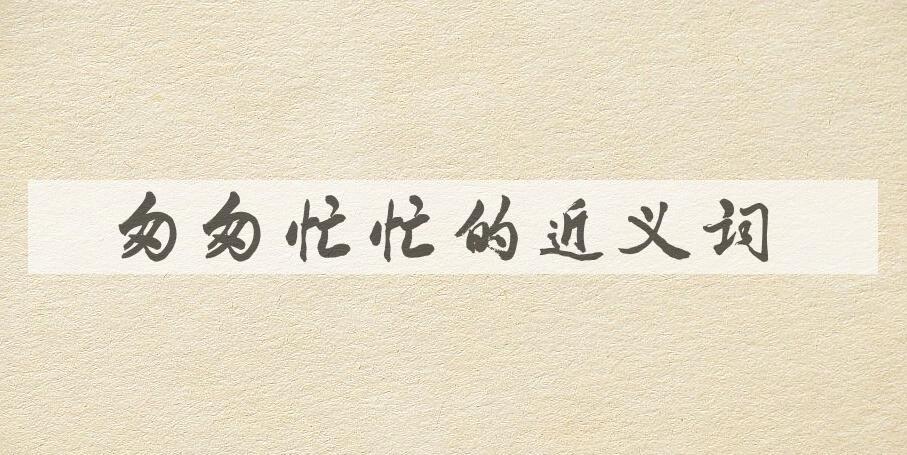 匆匆忙忙的近义词